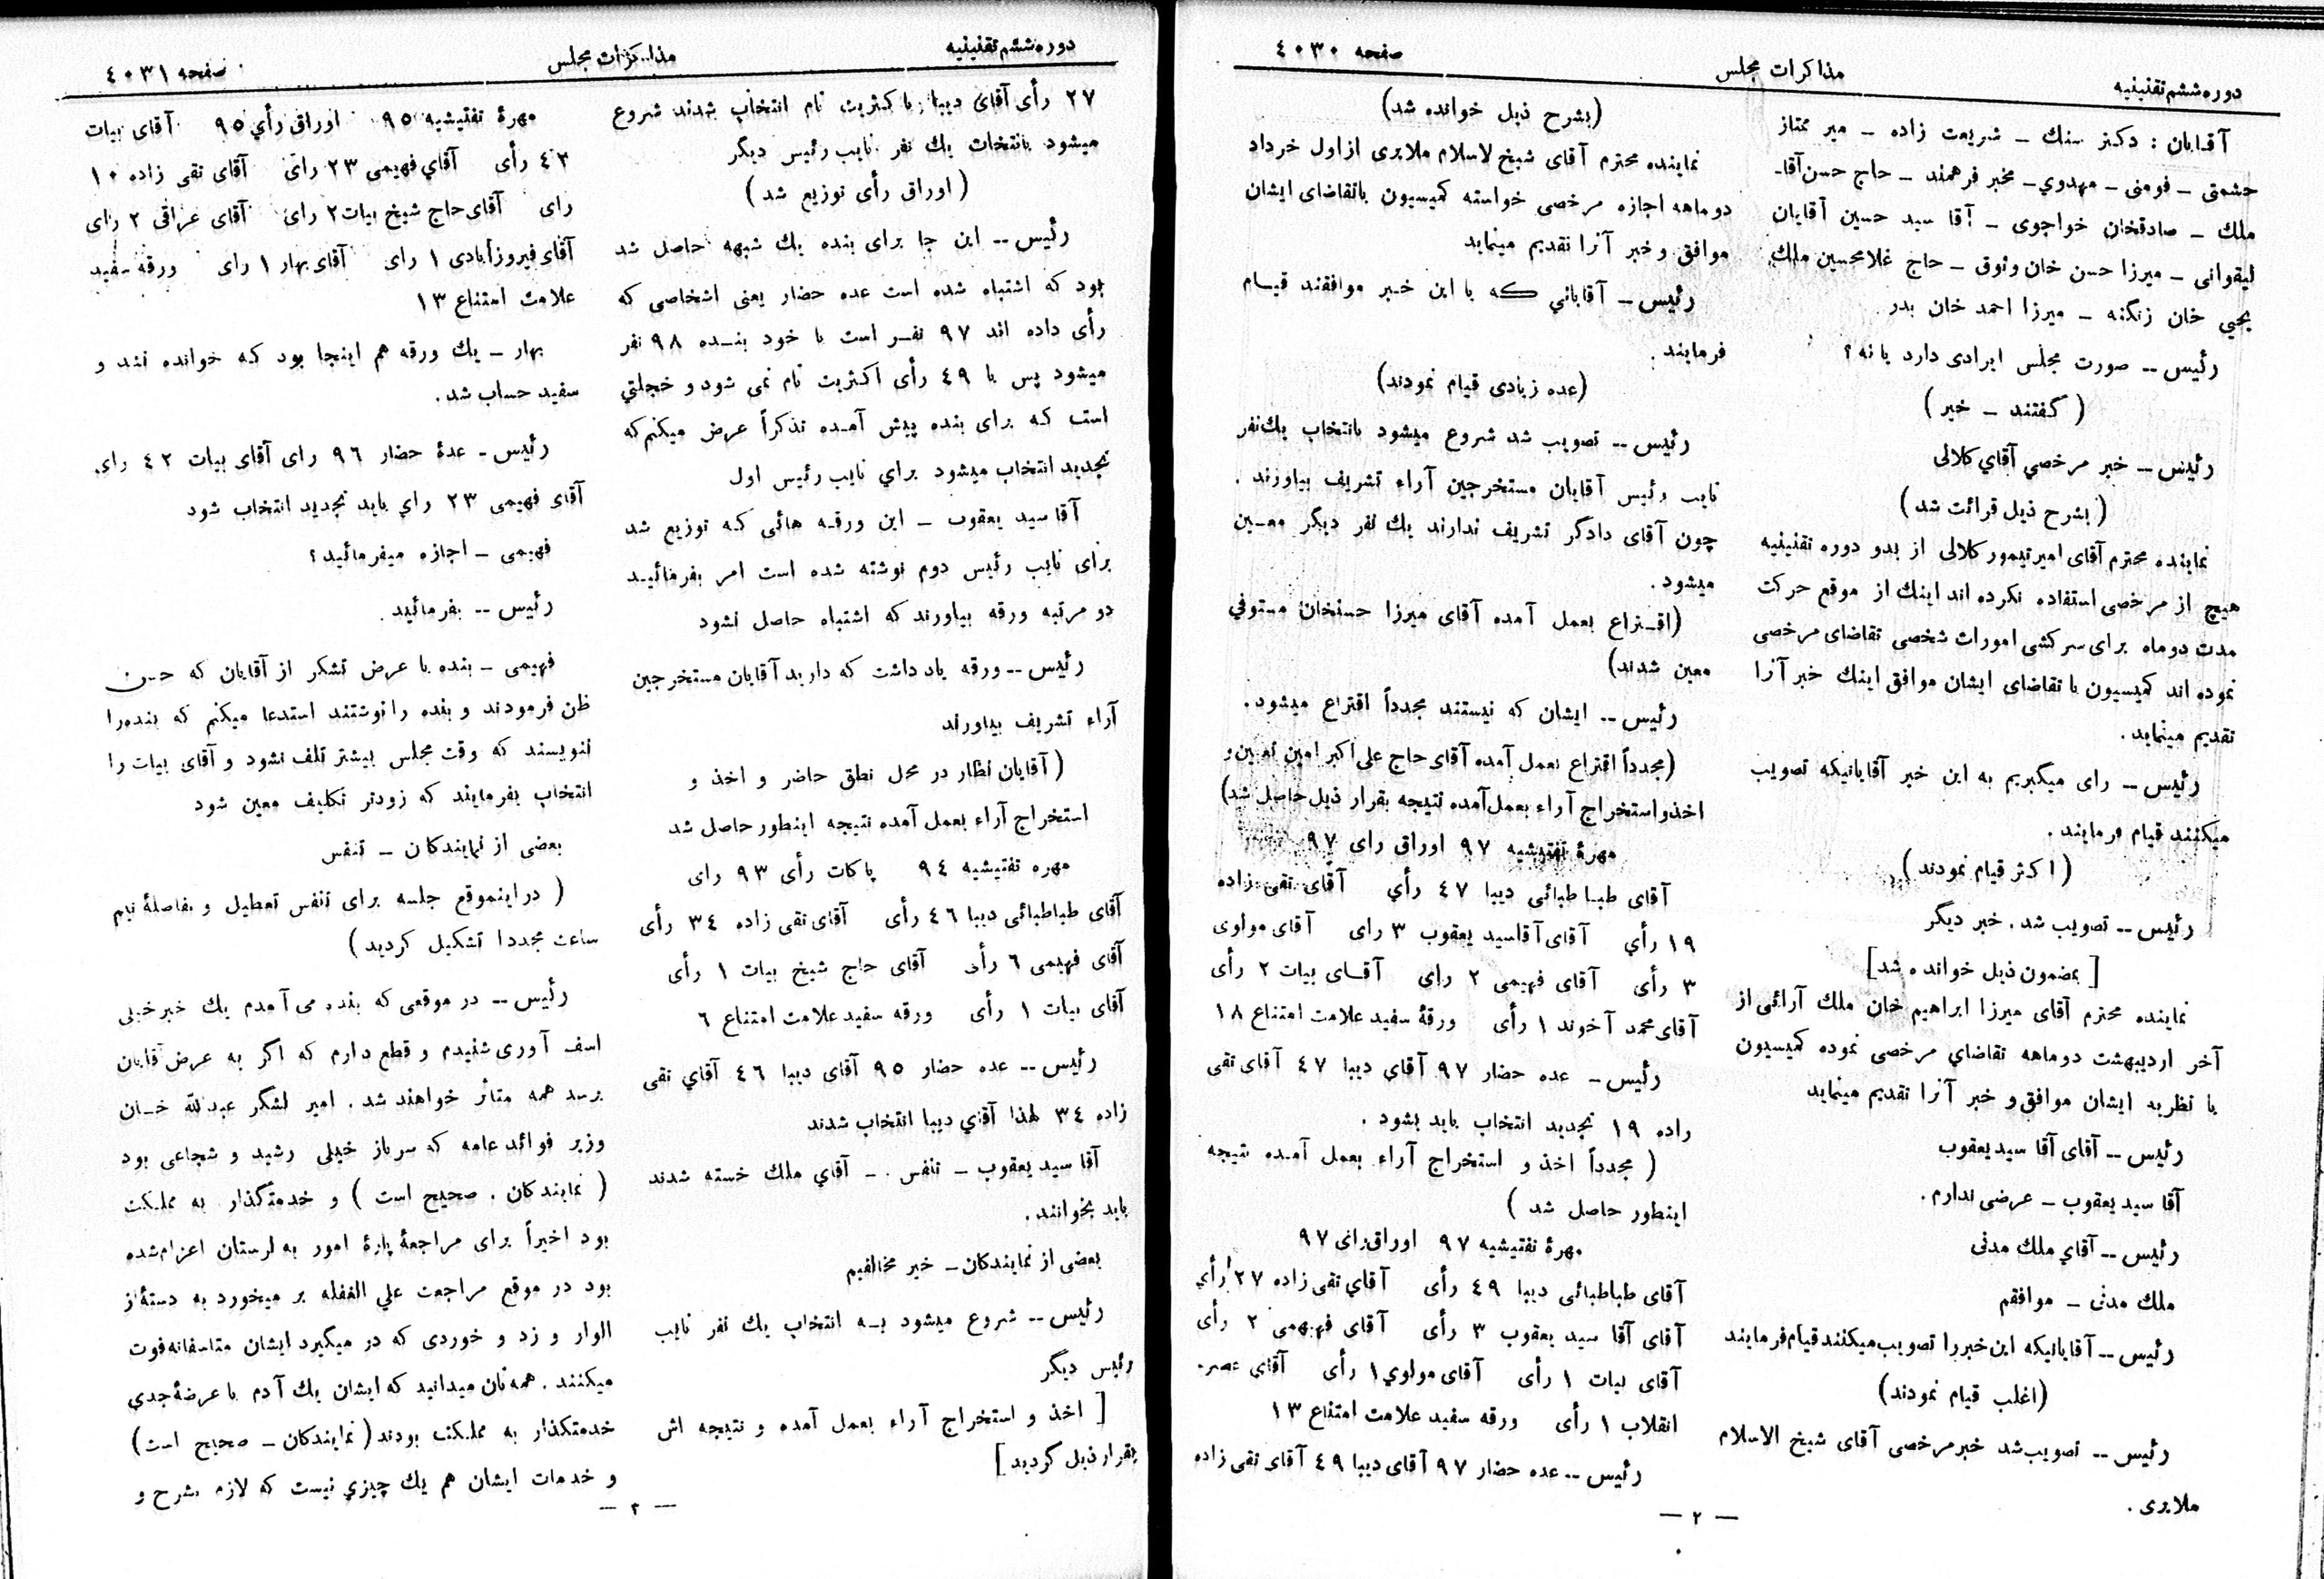 دوره ششم تقنینیه
مذاکرات مجلس
صفحه ٤٠٣٠
آقایان : دکتر سنك ـ شریعت زاده ـ میر ممتاز
حشمتی ـ فومنی ـ مهدوي ـ مخبر فرهمند ـ حاج حسن آقا ـ
ملك ـ صادقخان خواجوی ـ آقا سید حسین آقایان
لیقوانی ـ میرزا حسن خان وثوق ـ حاج غلامحسین ملك
یحیي خان زنگنه ـ میرزا احمد خان بدر
رئیس -- صورت مجلس ایرادی دارد یا نه ؟
( گفتند ـ خیر )
رئیس -- خبر مرخصي آقاي کلالی
(بشرح ذیل قرائت شد)
نماینده محترم آقای امیر تیمور کلالی از بدو دوره تقنینیه
هیچ از مرخصی استفاده نکرده اند اینك از موقع حرکت
مدت دو ماه برای سرکشی امورات شخصی تقاضای مرخصی
نموده اند کمیسیون با تقاضای ایشان موافق اینك خبر آنرا
تقدیم مینماید .
رئیس -- رای میگیریم به این خبر آقایانیکه تصویب
میکنند قیام فرمایند .
( اکثر قیام نمودند )
رئیس -- تصویب شد . خبر دیگر
[ بمضمون ذیل خوانده شد]
نماینده محترم آقای میرزا ابراهیم خان ملك آرائی از
آخر اردیبهشت دوماهه تقاضاي مرخصی نموده کمیسیون
با نظریه ایشان موافق و خبر آنرا تقدیم مینماید
رئیس -- آقای آقا سید یعقوب
آقا سید یعقوب ـ عرضی ندارم .
رئیس -- آقاي ملك مدنی
ملك مدنی ـ موافقم
رئیس -- آقایانیکه این خبر را تصویب میکنند قیام فرمایند
(اغلب قیام نمودند)
رئیس -- تصویب شد خبر مرخصی آقای شیخ الاسلام
ملایری .
(بشرح ذیل خوانده شد)
نماینده محترم آقای شیخ لاسلام ملایری از اول خرداد
دو ماهه اجازه مرخصی خواسته کمیسیون باتقاضای ایشان
موافق و خبر آنرا تقدیم مینماید
رئیس ـ آقایاني که با این خبر موافقند قیام
فرمایند .
(عده زیادی قیام نمودند)
رئیس -- تصویب شد شروع میشود بانتخاب یك نفر
نایب رئیس آقایان مستخرجین آراء تشریف بیاورند .
چون آقای دادگر تشریف ندارند یك نفر دیگر معین
میشود .
(اقتراع بعمل آمده آقای میرزا حسنخان مستوفي
معین شدند)
رئیس -- ایشان که نیستند مجدداً اقتراع میشود .
(مجدداً اقتراع بعمل آمده آقای حاج علی اکبر امین تعیین و
اخذ و استخراج آراء بعمل آمده نتیجه بقرار ذیل حاصل شد)
مهرۀ تفتیشیه ٩٧ اوراق رای ٩٧
آقای طباطبائی دیبا ٤٧ رأي آقای تقی زاده
١٩ رأي آقای آقاسید یعقوب ٣ رای آقای مولوی
٣ رأی آقای فهیمی ٢ رای آقای بیات ٢ رأی
آقای محمد آخوند ١ رأی ورقۀ سفید علامت امتناع ١٨
رئیس ـ عده حضار ٩٧ آقاي دیبا ٤٧ آقای تقی
زاده ١٩ تجدید انتخاب باید بشود .
( مجدداً اخذ و استخراج آراء بعمل آمده نتیجه
اینطور حاصل شد )
مهرۀ تفتیشیه ٩٧ اوراق رای ٩٧
آقای طباطبائی دیبا ٤٩ رأی آقاي تقی زاده ٢٧ رأي
آقای آقا سید یعقوب ٣ رأی آقای فهیمی ٢ رأی
آقای بیات ١ رأی آقای مولوي ١ رأی آقای عصر ـ
انقلاب ١ رأی ورقه سفید علامت امتناع ١٣
رئیس -- عده حضار ٩٧ آقای دیبا ٤٩ آقای تقی زاده
— ٢ —
دوره ششم تقنینیه
مذاکرات مجلس
صفحه ٤٠٣١
٢٧ رأی آقای دیبا باکثریت تام انتخاب شدند شروع
میشود بانتخاب یك نفر نایب رئیس دیگر
( اوراق رأی توزیع شد )
رئیس -- این جا برای بنده یك شبهه حاصل شد
بود که اشتباه شده است عده حضار یعنی اشخاصی که
رأی داده اند ٩٧ نفر است با خود بنده ٩٨ نفر
میشود پس با ٤٩ رأی اکثریت تام نمی شود و خجلتي
است که برای بنده پیش آمده تذکراً عرض میکنم که
تجدید انتخاب میشود براي نایب رئیس اول
آقا سید یعقوب ـ این ورقه هائی که توزیع شد
برای نایب رئیس دوم نوشته شده است امر بفرمائید
دو مرتبه ورقه بیاورند که اشتباه حاصل نشود
رئیس -- ورقه یاد داشت که دارید آقایان مستخرجین
آراء تشریف بیاورند
( آقایان نظار در محل نطق حاضر و اخذ و
استخراج آراء بعمل آمده نتیجه اینطور حاصل شد
مهره تفتیشیه ٩٤ پاکات رأی ٩٣ رای
آقای طباطبائی دیبا ٤٦ رأی آقای تقی زاده ٣٤ رأی
آقای فهیمی ٦ رأی آقای حاج شیخ بیات ١ رأی
آقای بیات ١ رأی ورقه سفید علامت امتناع ٦
رئیس -- عده حضار ٩٥ آقای دیبا ٤٦ آقاي تقی
زاده ٣٤ لهذا آقاي دیبا انتخاب شدند
آقا سید یعقوب ـ تنفس -- آقاي ملك خسته شدند
باید بخوانند .
بعضی از نمایندکان ـ خیر مخالفیم
رئیس -- شروع میشود به انتخاب یك نفر نایب
رئیس دیگر
[ اخذ و استخراج آراء بعمل آمده و نتیجه اش
بقرار ذیل گردید ]
مهرۀ تفتیشیه ٩٥ اوراق رأي ٩٥ آقای بیات
٤٢ رأی آقاي فهیمی ٢٣ رای آقای تقی زاده ١٠
رای آقای حاج شیخ بیات ٢ رای آقای عراقی ٢ رای
آقای فیروزآبادی ١ رای آقای بهار ١ رای ورقه سفید
علامت امتناع ١٣
بهار ـ یك ورقه هم اینجا بود که خوانده نشد و
سفید حساب شد .
رئیس ـ عدۀ حضار ٩٦ رای آقای بیات ٤٢ رای
آقای فهیمی ٢٣ راي باید تجدید انتخاب شود
فهیمی ـ اجازه میفرمائید ؟
رئیس -- بفرمائید .
فهیمی ـ بنده با عرض تشکر از آقایان که حسن
ظن فرمودند و بنده را نوشتند استدعا میکنم که بنده را
ننویسند که وقت مجلس بیشتر تلف نشود و آقای بیات را
انتخاب بفرمایند که زودتر تکلیف معین شود
بعضی از نمایندکان ـ تنفس
( در اینموقع جلسه برای تنفس تعطیل و بفاصلۀ نیم
ساعت مجددا تشکیل کردید )
رئیس -- در موقعی که بنده می آمدم یك خبر خیلی
اسف آوری شنیدم و قطع دارم که اگر به عرض آقایان
برسد همه متأثر خواهند شد . امیر لشگر عبدالله خان
وزیر فوائد عامه که سرباز خیلی رشید و شجاعی بود
( نمایندکان . صحیح است ) و خدمتگذار به مملکت
بود اخیراً برای مراجعۀ پارۀ امور به لرستان اعزام شده
بود در موقع مراجعت علي الغفله بر میخورد به دستۀ از
الوار و زد و خوردی که در میگیرد ایشان متاسفانه فوت
میکنند . همه تان میدانید که ایشان یك آدم با عرضۀ جدی
خدمتکذار به مملکت بودند ( نمایندکان ـ صحیح است )
و خدمات ایشان هم یك چیزي نیست که لازم بشرح و
— ٢ —